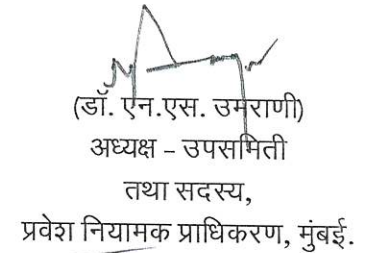 (डॉ. एन.एस. उमराणी)
अध्यक्ष – उपसमिती
तथा सदस्य,
प्रवेश नियामक प्राधिकरण, मुंबई.